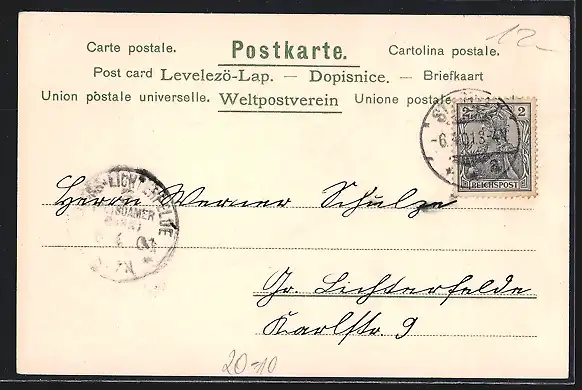 12.-
Carte postale. Postkarte. Cartolina postale.
Post card Levelezö-Lap. — Dopisnice. — Briefkaart
Union postale universelle. Weltpostverein Unione postale
2 2
REICHSPOST
Herrn Werner Schulze
LICHTERFELDE
Gr. Lichterfelde
Karlstr. 9
20-10